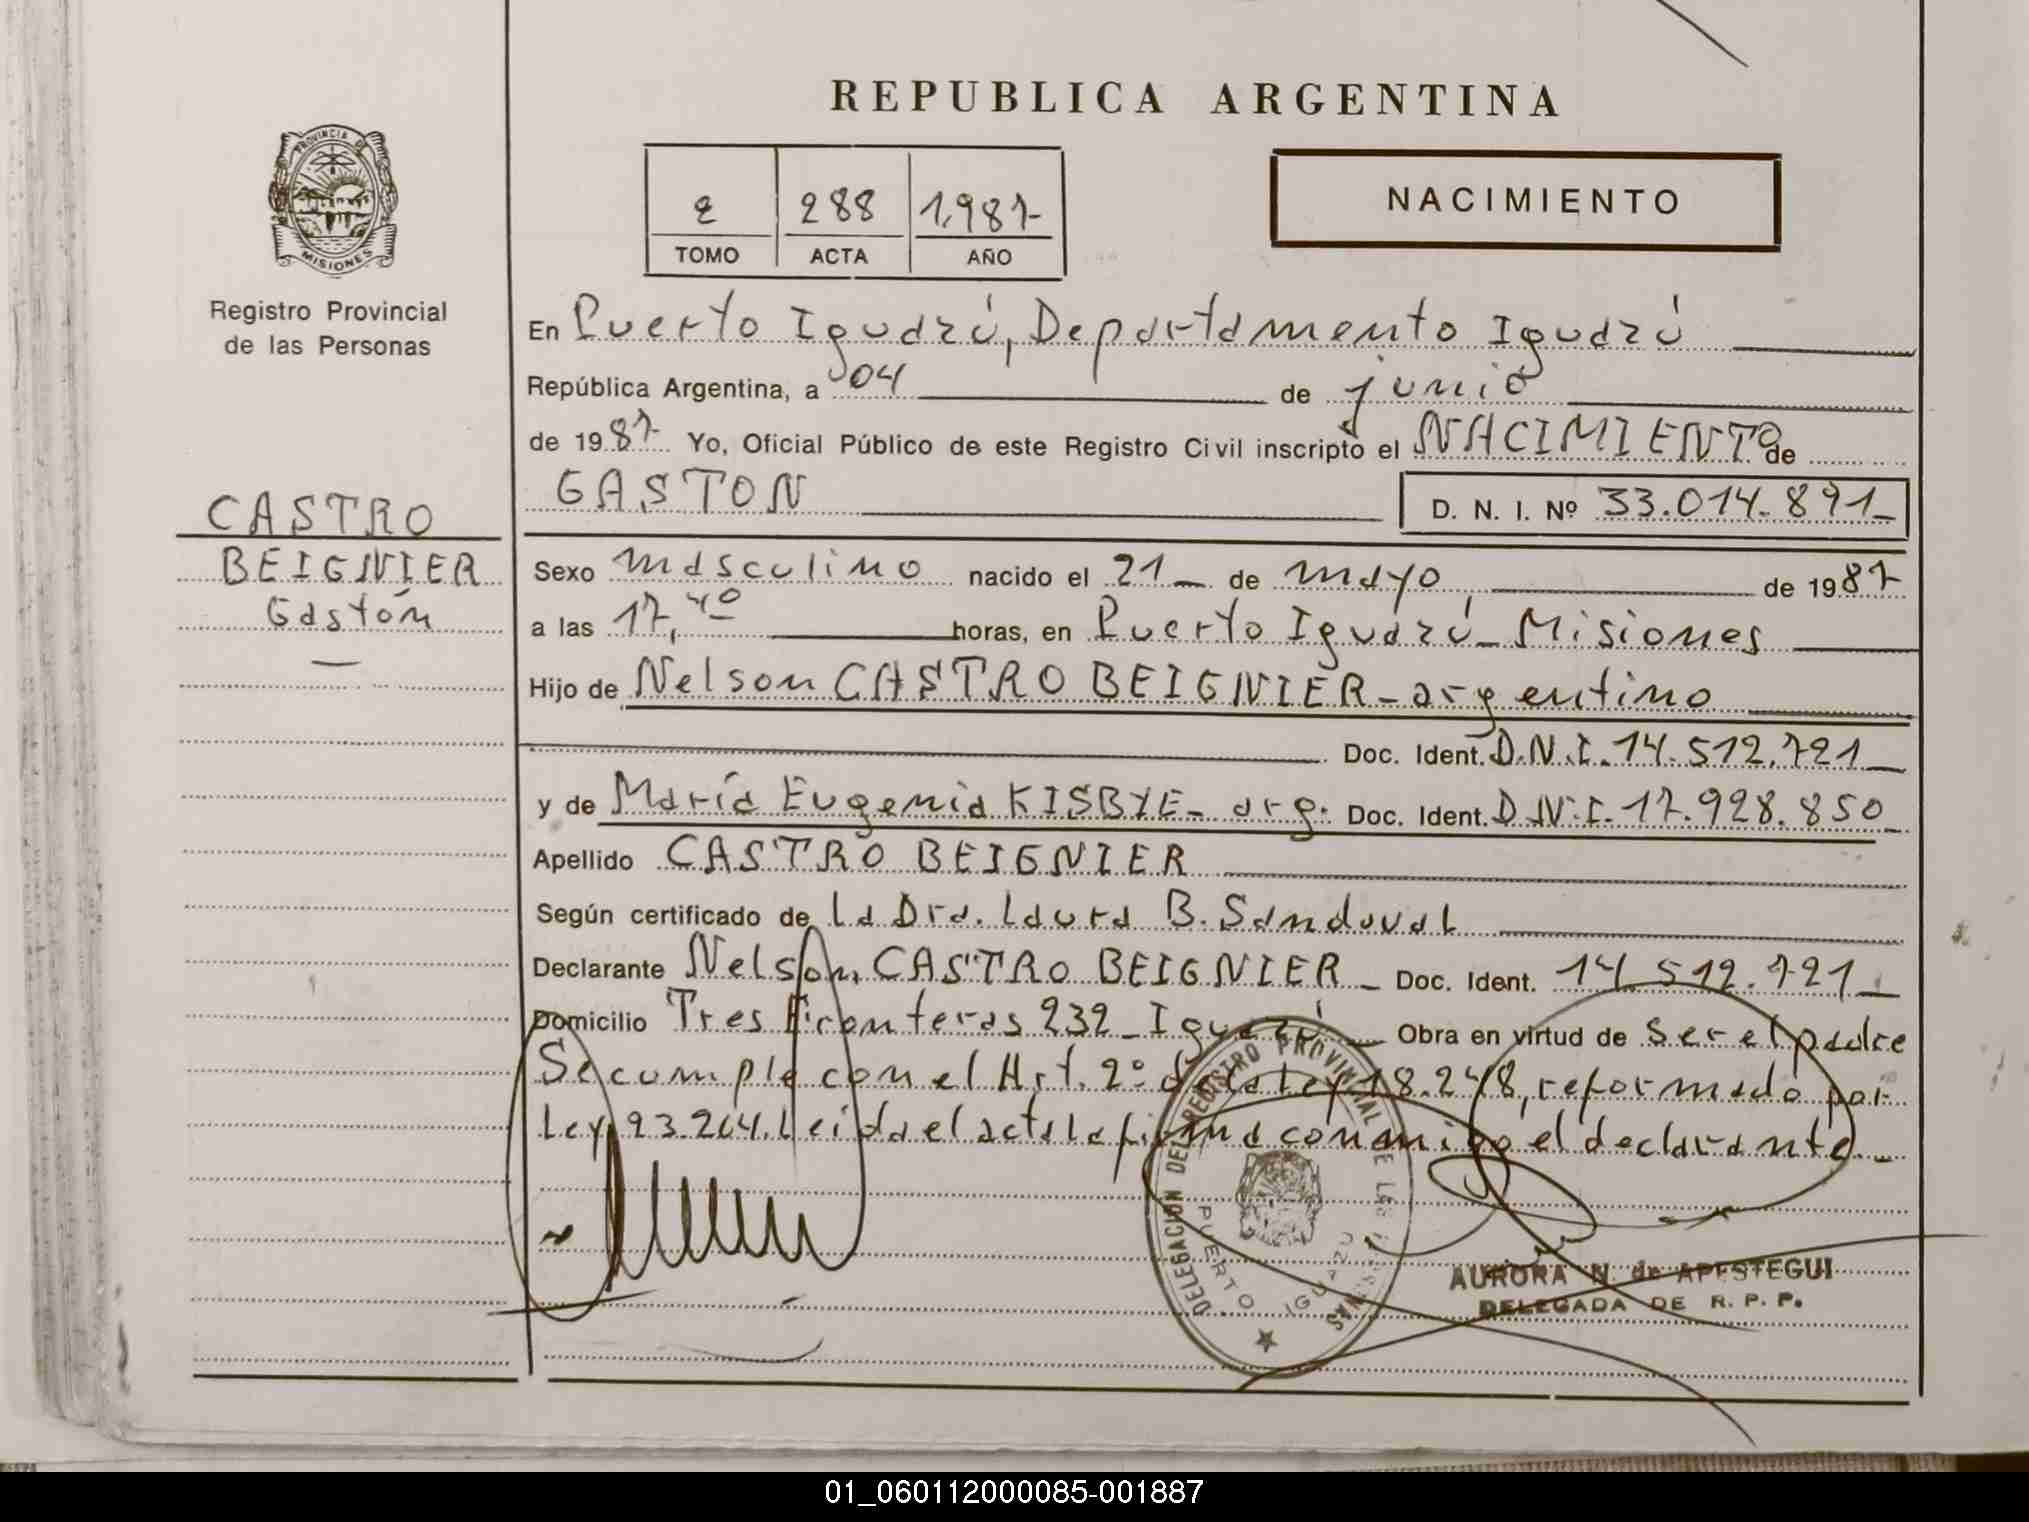 REPUBLICA ARGENTINA
PROVINCIA DE
MISIONES
Registro Provincial
de las Personas
2 288 1.987-
TOMO ACTA AÑO
NACIMIENTO
En Puerto Iguazú, Departamento Iguazú
República Argentina, a 04 de junio
de 1987 Yo, Oficial Público de este Registro Civil inscripto el NACIMIENTO de
GASTON D. N. I. Nº 33.014.891_
CASTRO
BEIGNIER
Gastón
Sexo masculino nacido el 21_ de mayo de 1987
a las 17,40 horas, en Puerto Iguazú_Misiones
Hijo de Nelson CASTRO BEIGNIER_argentino
Doc. Ident. D.N.I. 14.512.721_
y de María Eugenia KISBYE_ arg. Doc. Ident. D.N.I. 17.928.850_
Apellido CASTRO BEIGNIER
Según certificado de La Dra. Laura B. Sandoval
Declarante Nelson CASTRO BEIGNIER_ Doc. Ident. 14.512.721_
Domicilio Tres Fronteras 232_Iguazú_ Obra en virtud de ser el padre
Se cumple con el Art. 2º de la Ley 18.248, reformado por
Ley 23.264. Leída el acta la firma conmigo el declarante._
DELEGACION DEL REGISTRO PROVINCIAL DE LAS PERSONAS
PUERTO IGUAZU
MISIONES
AURORA N. de APESTEGUI
DELEGADA DE R. P. P.
01_060112000085-001887